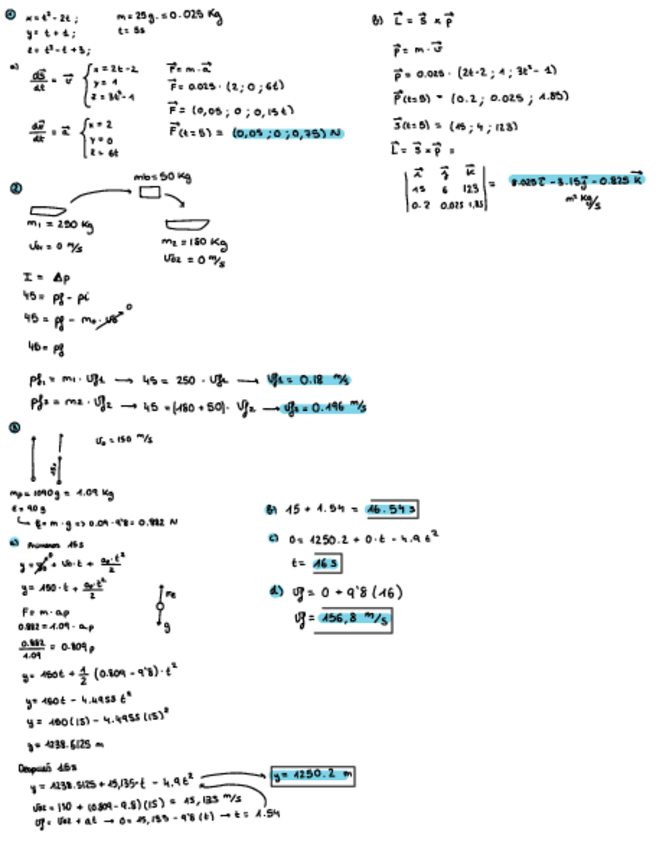 ① x = t² - 2t ; m = 25g. = 0.025 Kg
y = t + 1 ; t = 5s
z = t³ - t + 3 ;
a) ds/dt = v { x = 2t - 2
y = 1
z = 3t² - 1
dv/dt = a { x = 2
y = 0
z = 6t
F = m · a
F = 0.025 · (2; 0; 6t)
F = (0,05; 0; 0,15t)
F(t=5) = (0,05; 0; 0,75) N
b) L = s × p
p = m · v
p = 0.025 · (2t-2; 1; 3t²-1)
p(t=5) = (0.2; 0.025; 1.85)
s(t=5) = (15; 6; 123)
L = s × p =
| i j k |
| 15 6 123 | = 8.025 i - 3.15 j - 0.825 k
| 0.2 0.025 1,85 | m² Kg/s
② mb = 50 Kg
m₁ = 250 Kg
v₀₁ = 0 m/s
m₂ = 180 Kg
v₀₂ = 0 m/s
I = Δp
45 = pf - pi
45 = pf - m₀ · v₀ 0
45 = pf
pf₁ = m₁ · vf₁ → 45 = 250 · vf₁ → vf₁ = 0.18 m/s
pf₂ = m₂ · vf₂ → 45 = (180 + 50) · vf₂ → vf₂ = 0.196 m/s
③ v₀ = 150 m/s
mp = 1090g = 1.09 Kg
E = 90g
↳ E = m · g => 0.09 · 9'8 = 0.882 N
a) Primeros 15s
y = y₀ 0 + v₀ · t + a₀ · t²/2
y = 150 · t + a₀ · t²/2
F = m · ap
0.882 = 1.09 · ap
0.882/1.09 = 0.809p
Fe
g
y = 150t + 1/2 (0.809 - 9'8) · t²
y = 150t - 4.4955 t²
y = 150(15) - 4.4955 (15)²
y = 1238.5125 m
Después 15s
y = 1238.5125 + 15,135 · t - 4.9t² → y = 1250.2 m
v₀₂ = 150 + (0.809 - 9.8)(15) = 15,135 m/s
vf = v₀₂ + at → 0 = 15,135 - 9'8 (t) → t = 1.54
b) 15 + 1.54 = 16.54 s
c) 0 = 1250.2 + 0 · t - 4.9 t²
t = 16 s
d) vf = 0 + 9'8 (16)
vf = 156,8 m/s